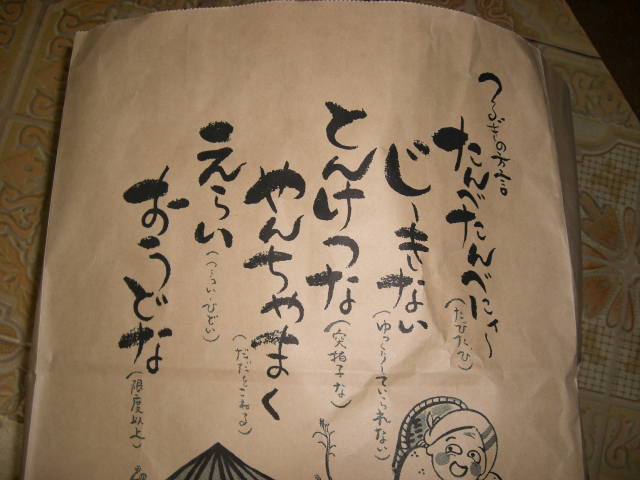 つるぎの方言
たんびたんびにゃ〜
(たびたび)
じーきない
(ゆっくりしていられない)
とんけつな
(突拍子な)
やんちゃまく
(だだをこねる)
えらい
(つらい・ひどい)
おうどな
(限度以上)